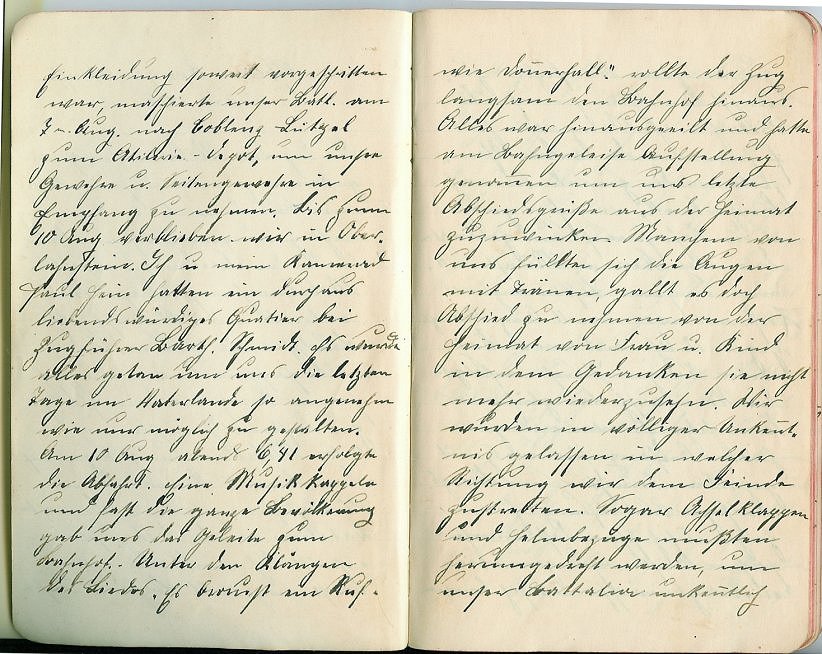 Einkleidung soweit vorgeschritten
war, maschierte unser Batl. am
7ten Aug. nach Coblenz-Lützel
zum Atilerie-Depot, um unsre
Gewehre u. Seitengewehre in
Empfang zu nehmen. Bis zum
10 Aug verblieben wir in Ober-
lahnstein. Ich u mein Kamerad
Paul Hein hatten ein durchaus
liebendswürdiges Quatier bei
Zugführer Barth. Schmidt. Es wurde
alles getan um uns die letzten
Tage im Vaterlande so angenehm
wie nur möglich zu gestalten.
Am 10 Aug abends 6 41 erfolgte
die Abfahrt. Eine Musikkappele
und fast die ganze Bevölkerung
gab uns das Geleite zum
Bahnhof. Unter den Klängen
des Liedes „Es braust ein Ruf-
wie Donnerhall." rollte der Zug
langsam den Bahnhof hinaus.
Alles war hinausgeeilt und hatte
am Bahngeleise Aufstellung
genommen um uns letzte
Abschiedsgrüße aus der Heimat
zuzuwinken. Manchem von
uns füllten sich die Augen
mit Tränen, gallt es doch
Abschied zu nehmen von der
Heimat von Frau u. Kind
in dem Gedanken sie nicht
mehr wiederzusehn. Wir
wurden in völliger Unkennt-
nis gelassen in welcher
Richtung wir dem Feinde
zustrebten. Sogar Achselklappen
und Helmbezuge mußten
herumgedreht werden, um
unser Battalion unkentlich